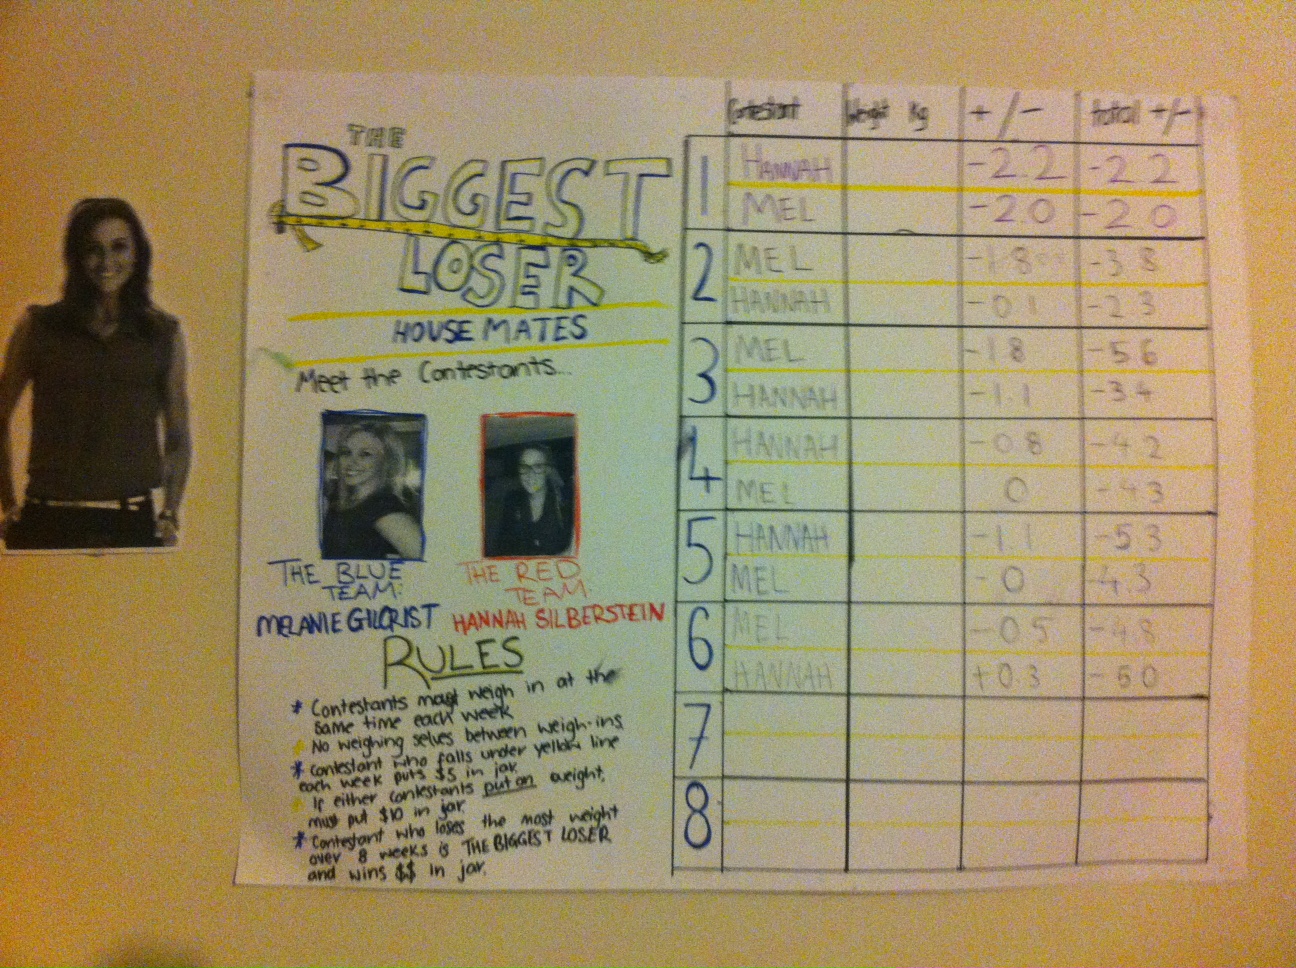 THE
BIGGEST
LOSER
HOUSE MATES
Meet the Contestants...
THE BLUE TEAM:
MELANIE GILCRIST
THE RED TEAM:
HANNAH SILBERSTEIN
RULES
* Contestants must weigh in at the
same time each week
No weighing selves between weigh-ins
* Contestant who falls under yellow line
each week puts $5 in jar.
If either contestants put on weight,
must put $10 in jar.
* Contestant who loses the most weight
over 8 weeks is THE BIGGEST LOSER
and wins $$ in jar.
Contestant Weight Kg +/- total +/-
1 HANNAH -2.2 -2 2
MEL -2.0 -2 0
2 MEL -1 8 -3 8
HANNAH -0 1 -2 3
3 MEL -1 8 -5 6
HANNAH -1.1 -3 4
4 HANNAH -0 8 -4 2
MEL 0 -4 3
5 HANNAH -1.1 -5 3
MEL -0 -4.3
6 MEL -0 5 -4.8
HANNAH +0.3 -5 0
7
8